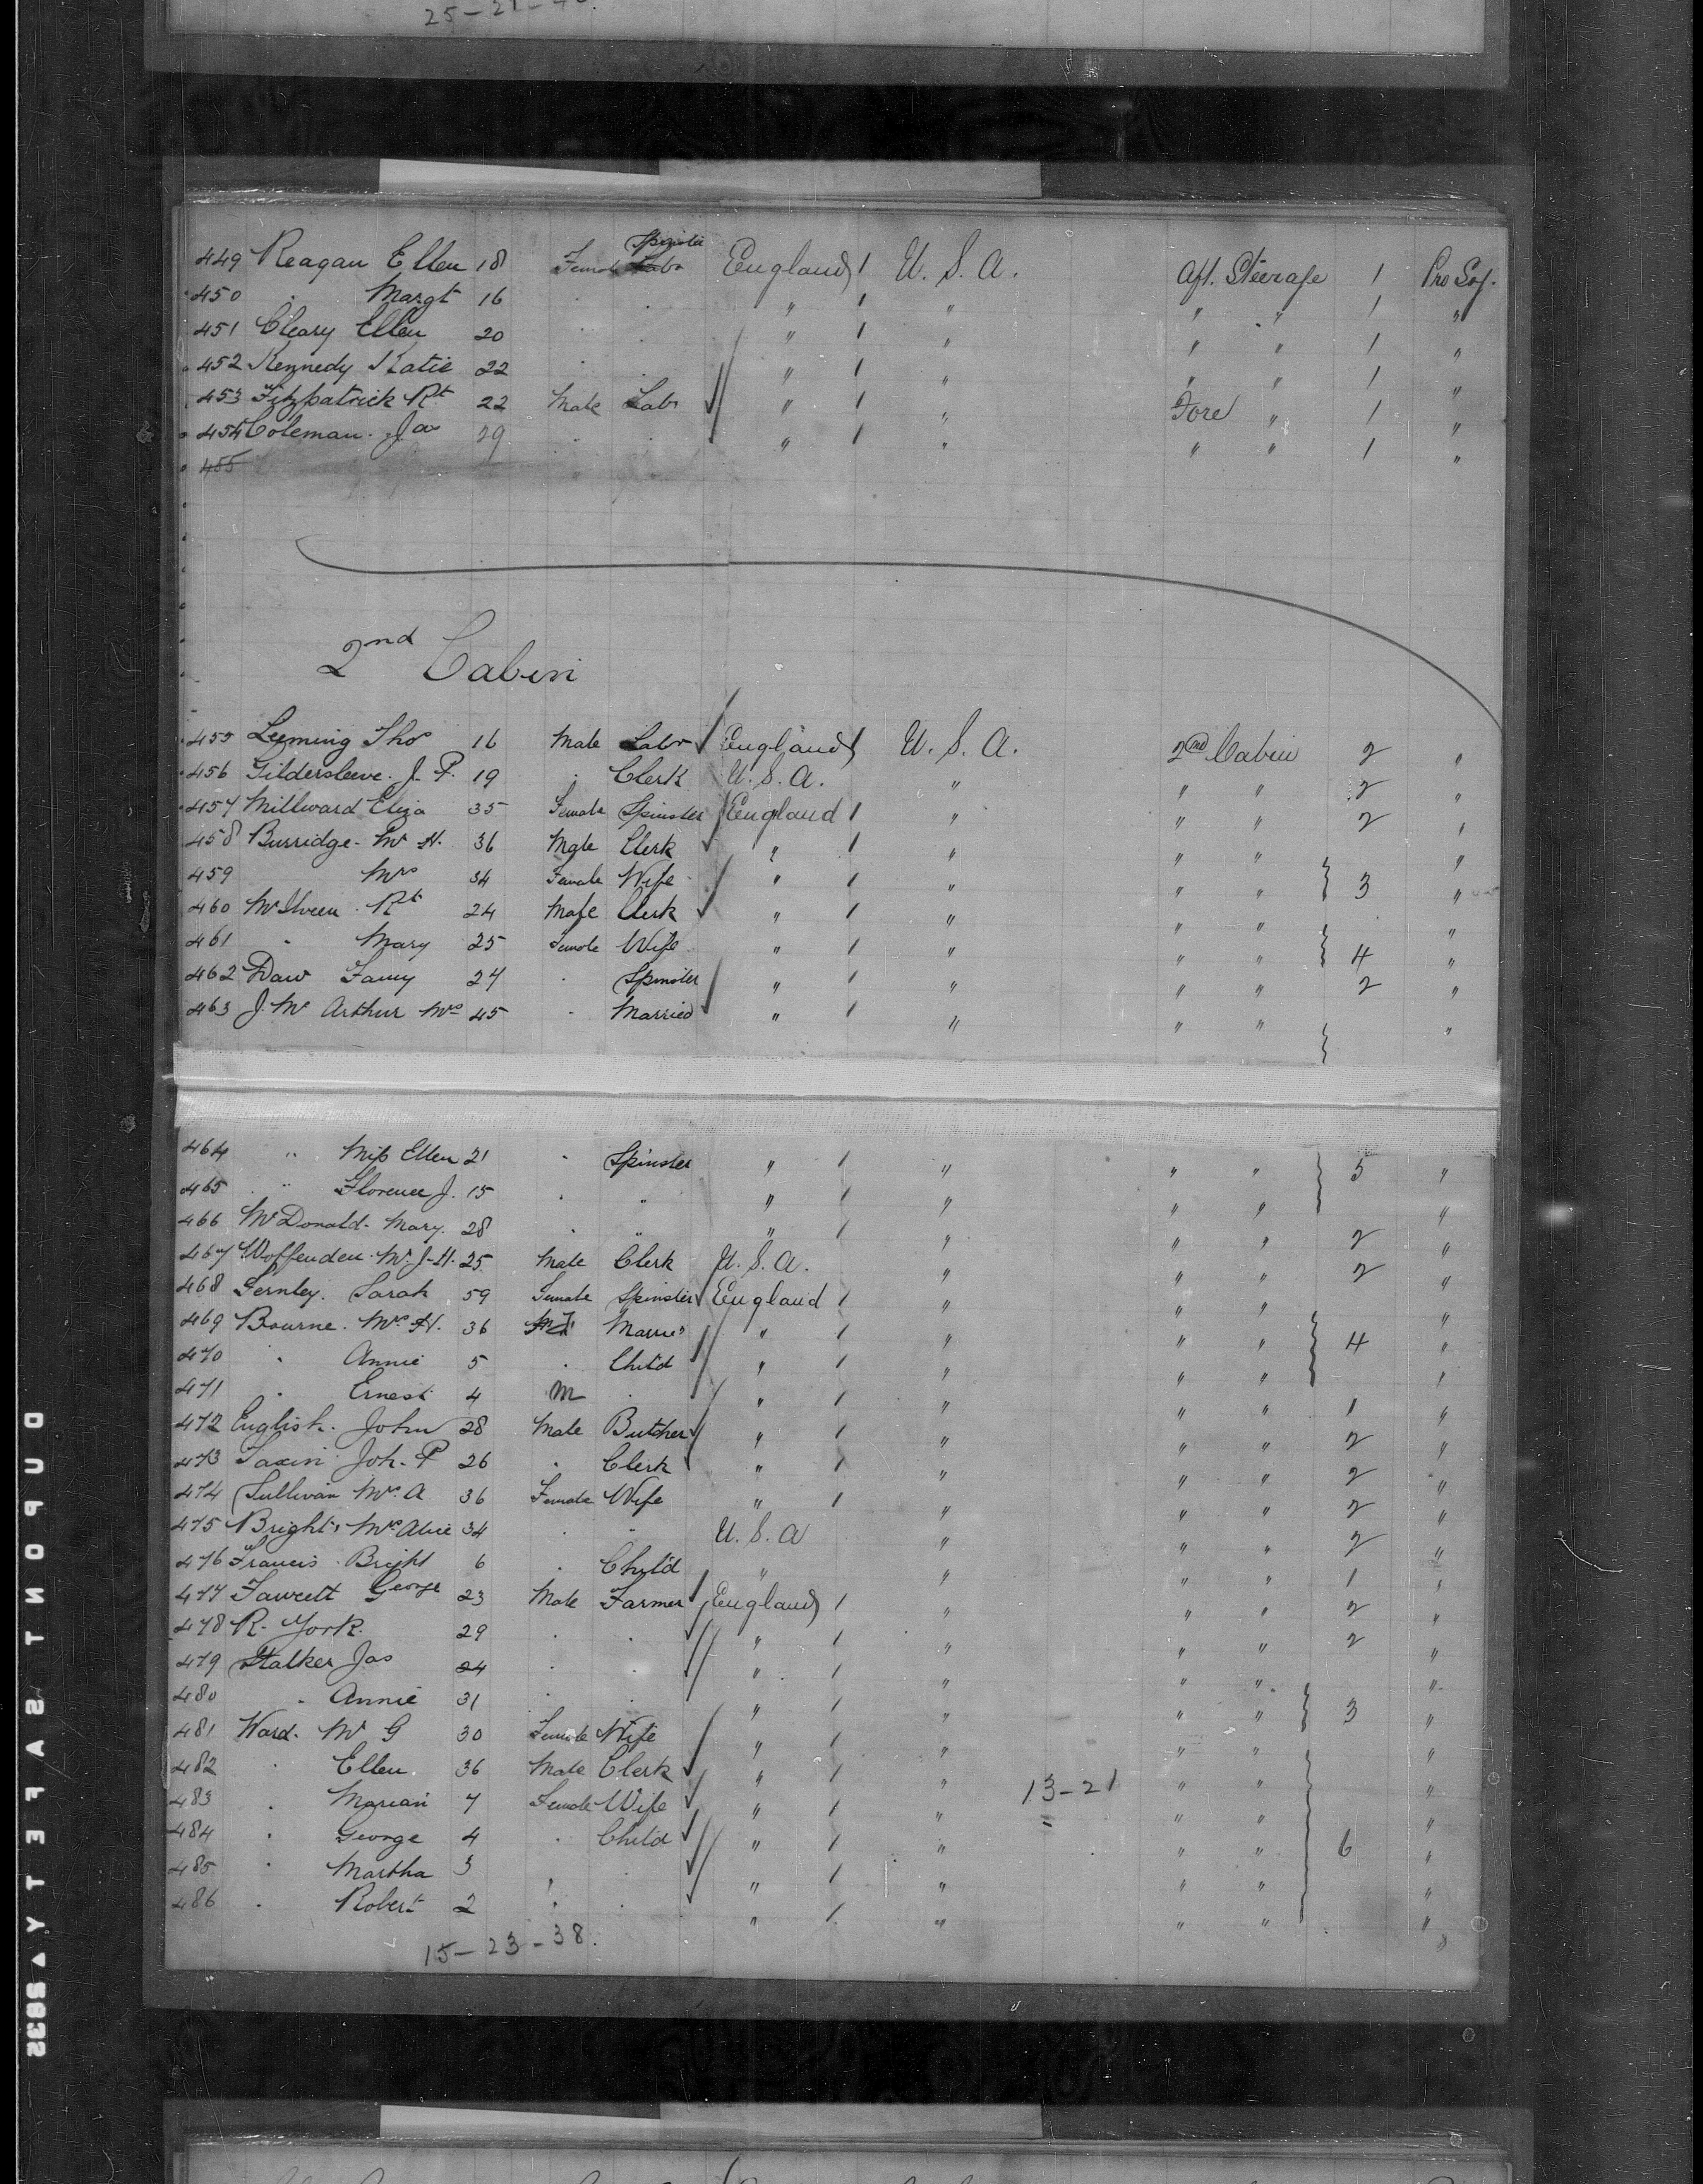 25-21-46.
449 Reagan Ellen 18 Female Spinster Labr England / U.S.A. Aft. Steerage 1 Pro Soj.
450 " Margt 16 " " " / " " " 1 "
451 Cleary Ellen 20 " " " / " " " 1 "
452 Kennedy Katie 22 " " " / " " " 1 "
453 Fitzpatrick Rt 22 Male Labr " / " Fore " 1 "
454 Coleman. Jas 29 " " " / " " " 1 "
455
2nd Cabin
455 Leeming Thos 16 Male Labr England / U.S.A. 2nd Cabin 2 "
456 Gildersleeve. J. P. 19 " Clerk U.S.A. " " " 2 "
457 Millward Eliza 35 Female Spinster England / " " " 2 "
458 Burridge. Mr H. 36 Male Clerk " / " " " "
459 Mrs 34 Female Wife " / " " " 3 "
460 McIlveen Rt 24 Male Clerk " / " " " "
461 " Mary 25 Female Wife " / " " " 4 "
462 Daw Fanny 24 " Spinster " / " " " 2 "
463 J. Mc Arthur Mrs 45 " Married " / " " " "
464 " Miss Ellen 21 " Spinster " / " " " 5 "
465 " Florence J. 15 " " " / " " " "
466 McDonald. Mary. 28 " " " / " " " 2 "
467 Woffenden. Mr. J.H. 25 Male Clerk U.S.A. " " " 2 "
468 Fernley. Sarah 59 Female Spinster England / " " " "
469 Bourne. Mrs H. 36 Married " / " " " 4 "
470 " Annie 5 " Child " / " " " "
471 " Ernest 4 M " " / " " " 1 "
472 English. John 28 Male Butcher " / " " " 2 "
473 Joh. P 26 " Clerk " / " " " 2 "
474 Sullivan Mrs. A 36 Female Wife " / " " " 2 "
475 Bright, Mrs Alice 34 " " U.S.A " " " 2 "
476 Francis Bright 6 " Child " " " " 1 "
477 Fawcett George 23 Male Farmer England / " " " 2 "
478 R. York. 29 " " " / " " " 2 "
479 Stalker Jas 24 " " " / " " " "
480 " Annie 31 " " " / " " " 3 "
481 Ward. Mr G 30 Female Wife " / " " " "
482 " Ellen. 36 Male Clerk " / " 13-21 " " "
483 " Marian 7 Female Wife " / " = " " "
484 " George 4 " Child " / " " " 6 "
485 " Martha 3 " " " / " " " "
486 " Robert 2 " " " / " " " "
15-23-38.
DUPONT SAFETY 5932